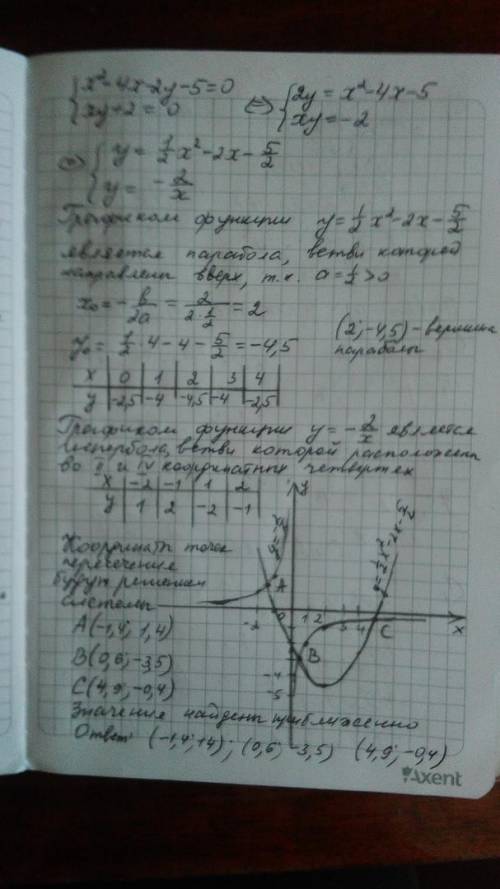 {x²-4x-2y-5=0
{xy+2=0 <=> {2y=x²-4x-5
{xy=-2
<=> {y=½x²-2x-5/2
{y=-2/x
Графиком функции y=½x²-2x-5/2
является парабола, ветви которой
направлены вверх, т.к. a=½>0
x₀=-b/2a=2/(2·½)=2
y₀=½·4-4-5/2=-4,5
(2;-4,5)-вершина
параболы
x 0 1 2 3 4
y -2,5 -4 -4,5 -4 -2,5
Графиком функции y=-2/x является
гипербола, ветви которой расположены
во II и IV координатных четвертях
x -2 -1 1 2
y 1 2 -2 -1
Координаты точек
пересечения
будут решением
системы
A(-1,4; 1,4)
B(0,6; -3,5)
C(4,9; -0,4)
y
y=-2/x
y=½x²-2x-5/2
A
-2 0 1 2 3 4 C x
B
-4
-5
Значения найдены приближенно
Ответ: (-1,4; +4); (0,6; -3,5) (4,9; -0,4)
Axent